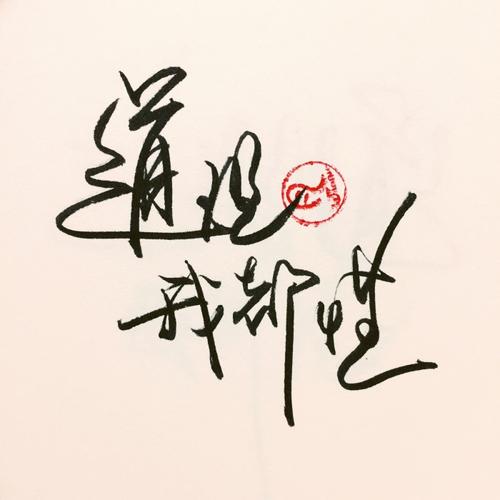 道理
我都懂